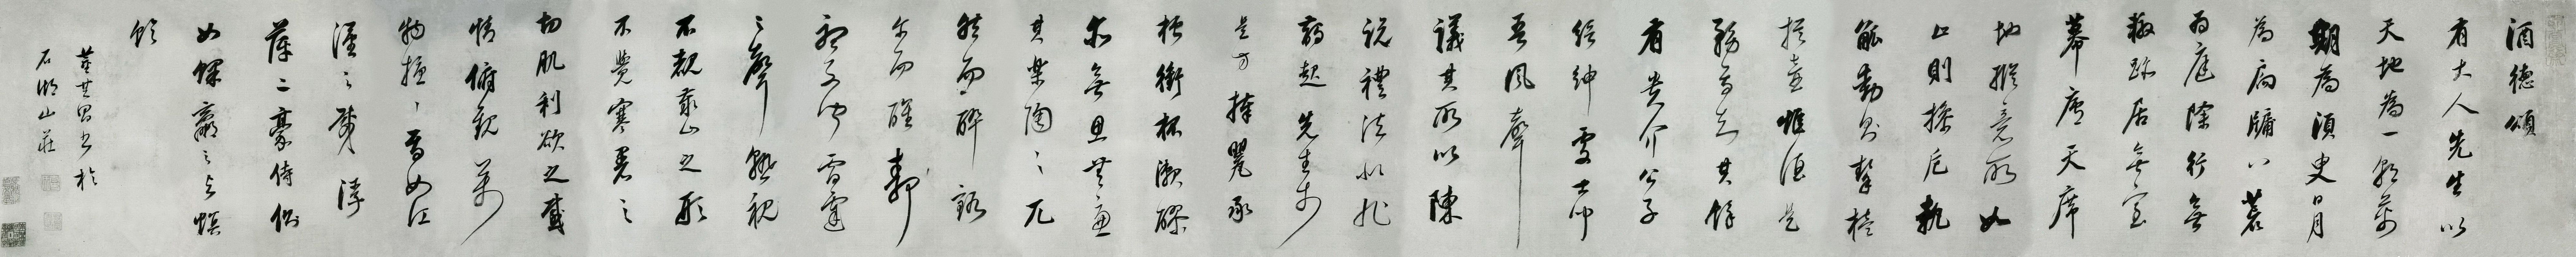 酒德頌
有大人先生以
天地為一朝萬
期為須臾日月
為扃牖八荒
為庭除行無
轍跡居無室
幕廬天席
地縱意所如
止則操卮執
觚動則挈榼
提壺唯酒是
務焉知其餘
有貴介公子
縉紳處士聞
吾風聲
議其所以陳
說禮法是非
起先生於
是方捧罌承
槽銜杯漱醪
無思無慮
其樂陶々兀
然而醉豁
尔而醒靜
聽不聞雷霆
之聲熟視
不覩泰山之形
不覺寒暑之
切肌利欲之感
情俯觀萬
物擾々焉如江
漢之載浮
萍二豪侍側
如蜾蠃之與螟
蛉
董其昌書於
石湖山莊